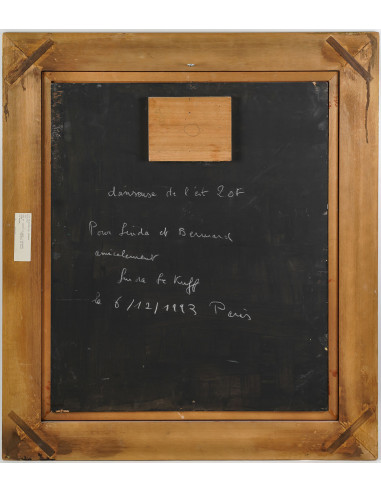 danseuse de l'été 20F
Pour Linda et Bernard
amicalement
le 6/12/1993 Paris